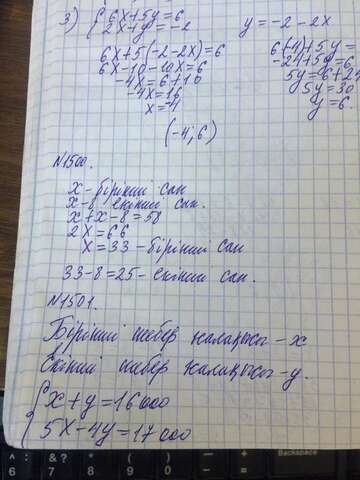 3) { 6x+5y=6
2x+y=-2
y=-2-2x
6x+5(-2-2x)=6
6x-10-10x=6
-4x=6+10
-4x=16
x=-4
6(-4)+5y=
-24+5y=6
5y=6+24
5y=30
y=6
(-4; 6)
№1500.
x-бірінші сан
x-8 екінші сан.
x+x-8=58
2x=66
x=33-бірінші сан
33-8=25-екінші сан.
№1501.
Бірінші шебер жалақысы-x
Екінші шебер жалақысы-y.
{ x+y=16000
5x-4y=17000
^ : &? * ( ) _ + Backspace
6 7 8 9 0 - =